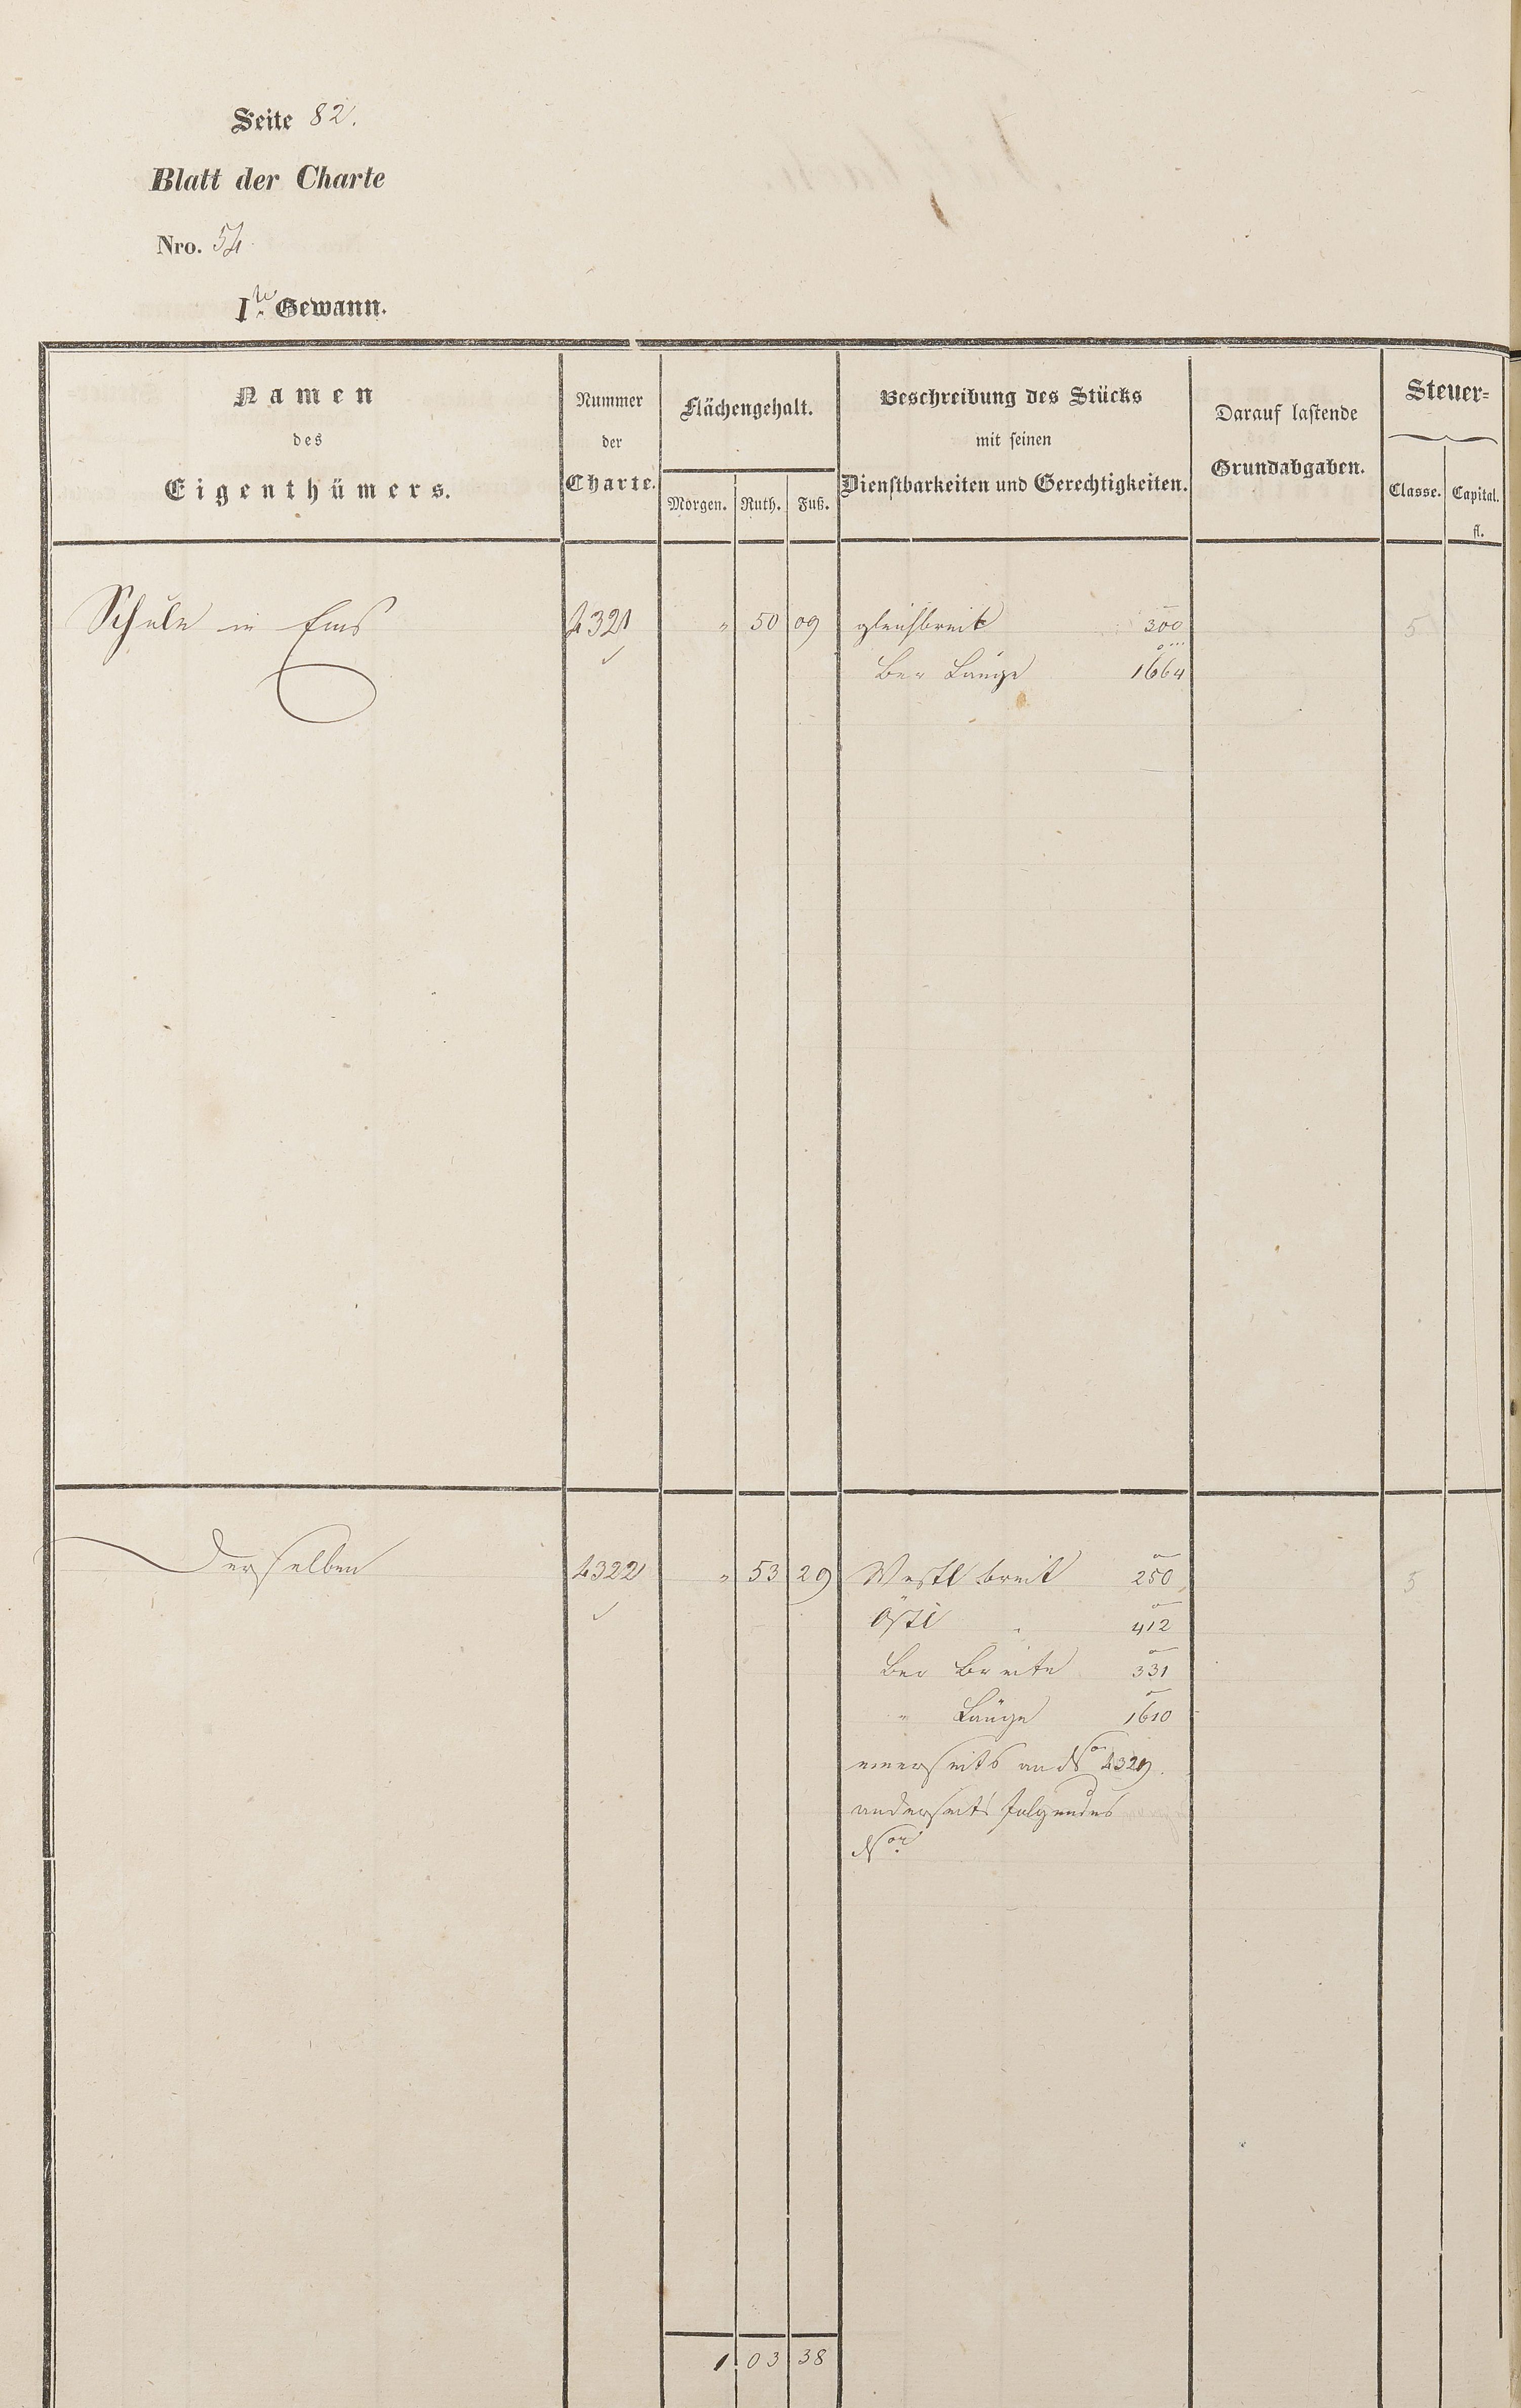 Seite 82.
Blatt der Charte
Nro. 54
I.te Gewann.
Namen
des
Eigenthümers.
Nummer
der
Charte.
Flächengehalt.
Morgen. Ruth. Fuß.
Beschreibung des Stücks
mit seinen
Dienstbarkeiten und Gerechtigkeiten.
Darauf lastende
Grundabgaben.
Steuer=
Classe. Capital.
fl.
Schule in Ems 4321 " 50 09 gleichbreit 300 5
Ber Länge 1664
Derselben 4322 " 53 29 Westl breit 250 5
Östl " 412
Ber Breite 331
" Länge 1610
einerseits an No
anderseits folgendes
No
1 03 38